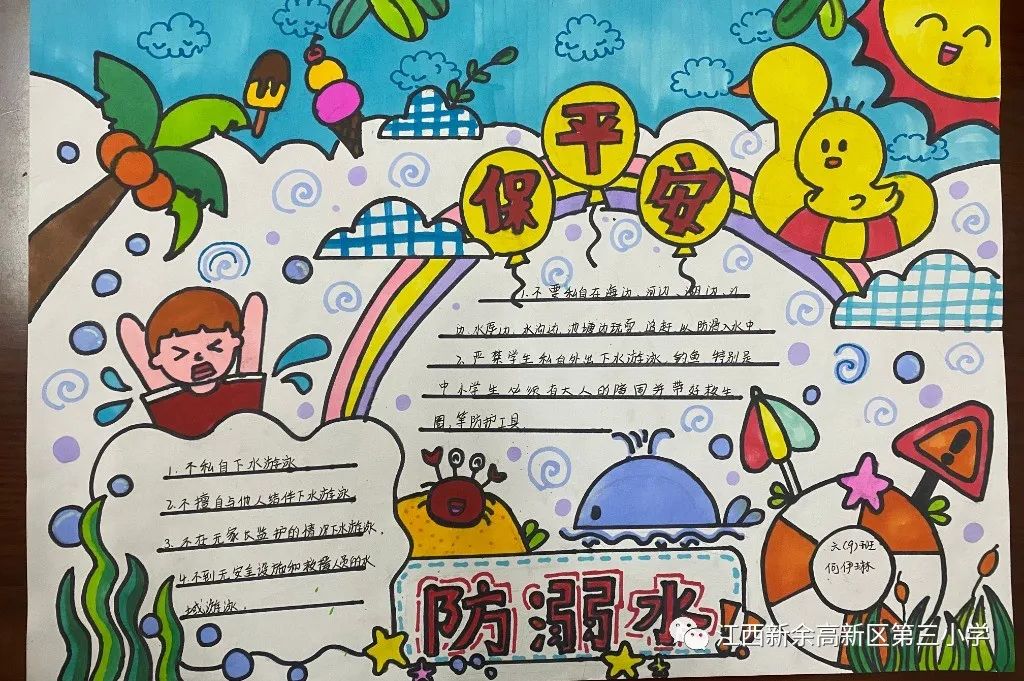 保平安
1.不要私自在海边、河边、湖边、江
边、水库边、水沟边、池塘边玩耍、追赶,以防滑入水中.
2.严禁学生私自外出下水游泳,钓鱼,特别是
中小学生必须有大人的陪同并带好救生
圈,等防护工具.
1.不私自下水游泳
2.不擅自与他人结伴下水游泳
3.不在无家长监护的情况下水游泳.
4.不到无安全设施和救援人员的水
域游泳.
六(9)班
何伊琳
防溺水!
江西新余高新区第三小学